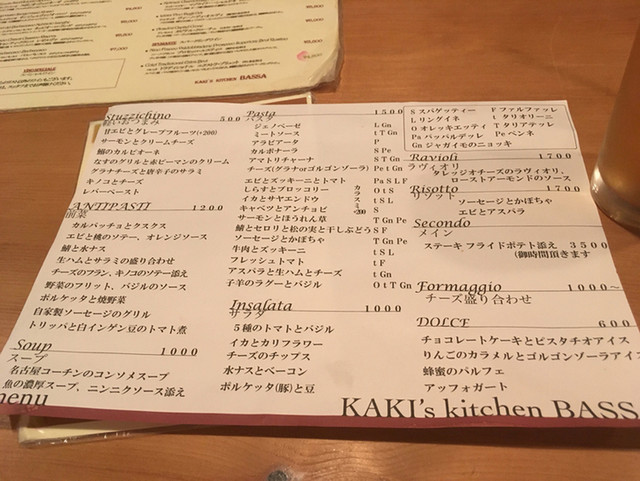 KAKI's KITCHEN BASSA
Stuzzichino 500
軽いおつまみ
甘エビとグレープフルーツ(+200)
サーモンとクリームチーズ
鰯のカルピオーネ
なすのグリルと赤ピーマンのクリーム
グラナチーズと唐辛子のサラミ
キノコとチーズ
レバーペースト
ANTIPASTI 1200
前菜
カルパッチョとクスクス
エビと桃のソテー、オレンジソース
鯖と水ナス
生ハムとサラミの盛り合わせ
チーズのフラン、キノコのソテー添え
野菜のフリット、バジルのソース
ポルケッタと焼野菜
自家製ソーセージのグリル
トリッパと白インゲン豆のトマト煮
Soup 1000
スープ
名古屋コーチンのコンソメスープ
魚の濃厚スープ、ニンニクソース添え
Pasta 1500
パスタ
ジェノベーゼ L Gn
ミートソース t T Gn
アラビアータ P
カルボナーラ S Pe
アマトリチャーナ S T Gn
チーズ(グラナorゴルゴンゾーラ) Pe t Gn
エビとズッキーニとトマト Pa S L F
しらすとブロッコリー O t S
イカとサヤエンドウ t S L
キャベツとアンチョビ S
カラスミ+200
サーモンとほうれん草 T Gn Pe
鯖とセロリと松の実と干しぶどう S F
ソーセージとかぼちゃ T Gn Pe
牛肉とズッキーニ t S L
フレッシュトマト F
アスパラと生ハムとチーズ t L
子羊のラグーとバジル O t T Gn
Insalata 1000
サラダ
5種のトマトとバジル
イカとカリフラワー
チーズのチップス
水ナスとベーコン
ポルケッタ(豚)と豆
S スパゲッティー F ファルファッレ
L リングイネ t タリオリーニ
O オレッキエッティ T タリアテッレ
Pa パッパルデッレ Pe ペンネ
Gn ジャガイモのニョッキ
Ravioli 1700
ラヴィオリ
タレッジオチーズのラヴィオリ、
ローストアーモンドのソース
Risotto 1700
リゾット
ソーセージとかぼちゃ
エビとアスパラ
Secondo
メイン
ステーキ フライドポテト添え 3500
(御時間頂きます
Formaggio 1000~
チーズ盛り合わせ
DOLCE 600
チョコレートケーキとピスタチオアイス
りんごのカラメルとゴルゴンゾーラアイス
蜂蜜のパルフェ
アッフォガート
menu
KAKI's kitchen BASSA